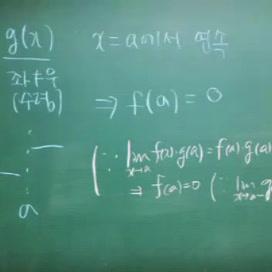 g(x)
x=a에서 연속
좌≠우
(수렴)
⇒ f(a) = 0
(∵ lim x→a f(x)·g(a)=f(a)·g(a)
⇒ f(a)=0 (∵ lim x→a- g
a